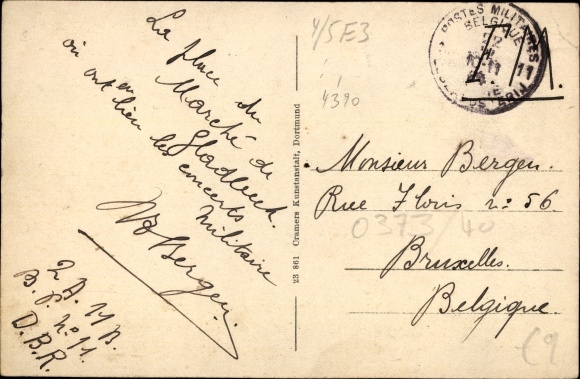 La place du
Marché de
Gladbeck.
où ont eu
lieu les concerts
militaire
Bergen.
2 A. 11 B.
B. P. N° 11.
D.B.R.
23 861 Cramers Kunstanstalt, Dortmund
4/5E3
4390
POSTES MILITAIRES
BELGIQUE
22
11
Monsieur Bergen.
Rue Floris n° 56
0373/40
Bruxelles.
Belgique.
€9